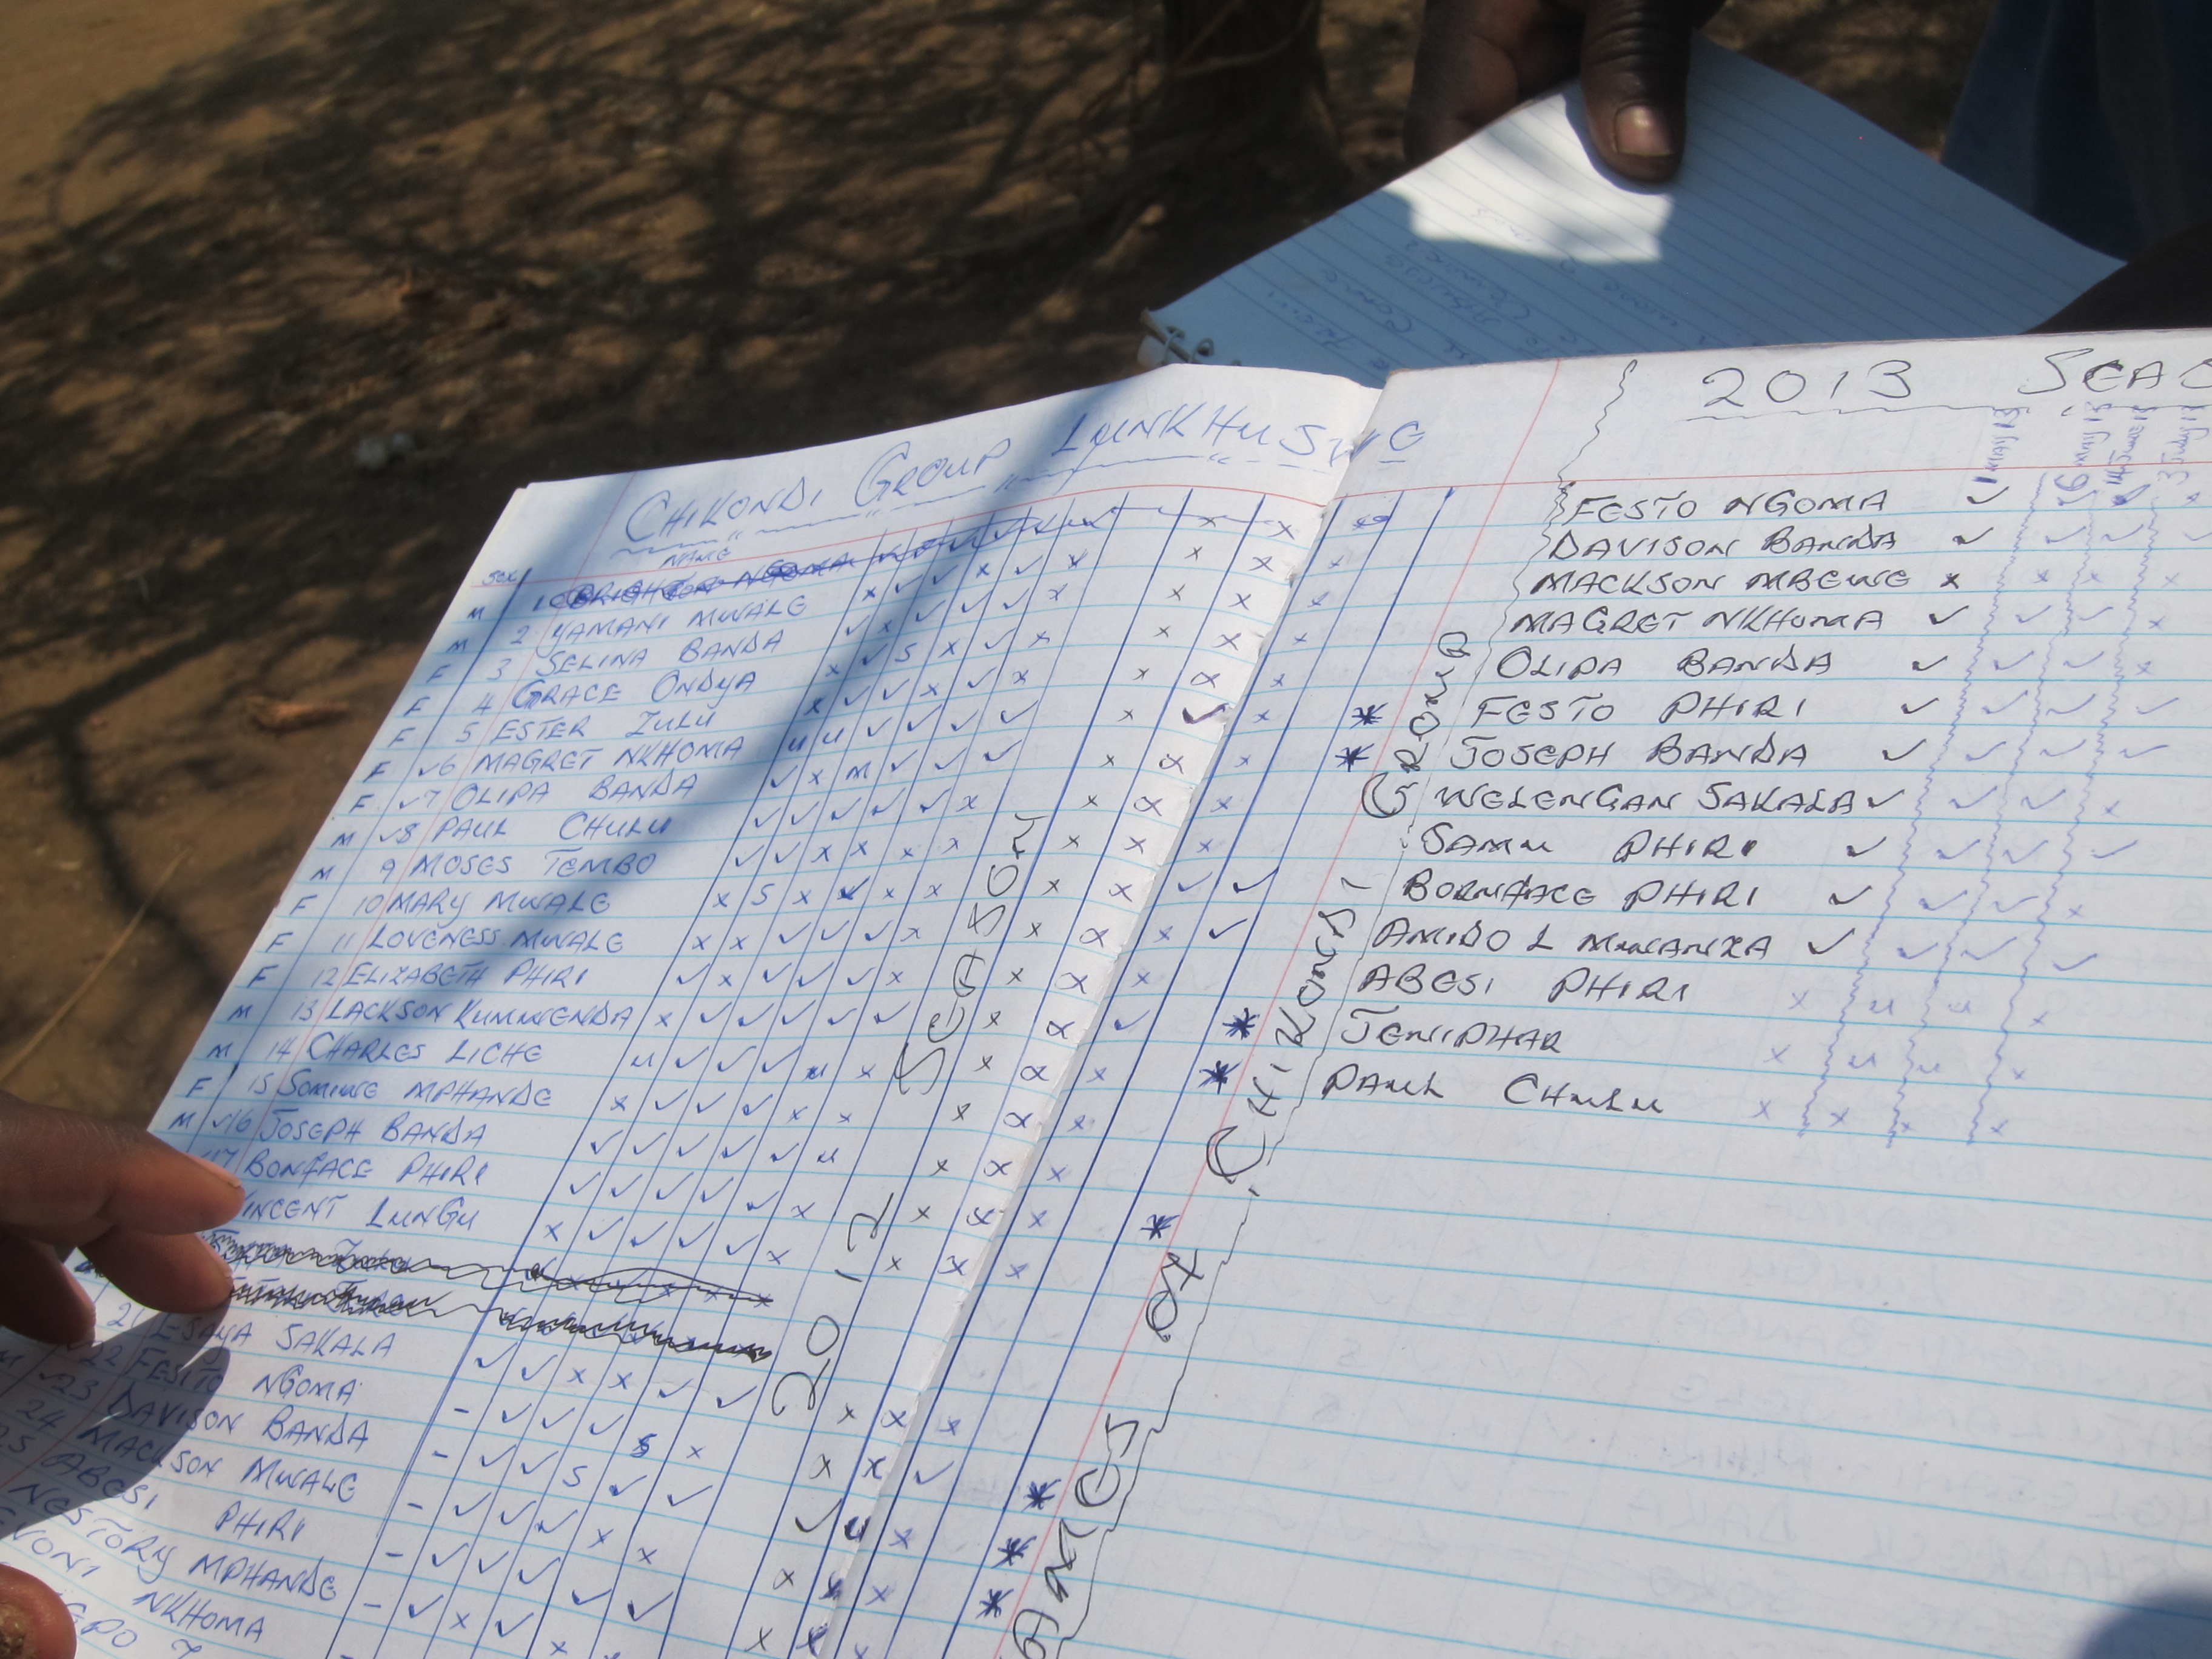 CHIKONDI GROUP LUNKHUSWE
SEX NAME
M 1 BRIGHTON NGOMA ✓ ✓ ✓ ✓ ✓ ✓ x x
M 2 YAMANI MWALE x ✓ ✓ x ✓ x x x x
F 3 SELINA BANDA ✓ x ✓ ✓ ✓ x x x x
F 4 GRACE ONDYA x ✓ S x ✓ x x x x
F 5 ESTER ZULU x ✓ ✓ x ✓ x x x x
F ✓6 MAGRET NKHOMA u u ✓ ✓ ✓ ✓ x ✓ x *
F ✓7 OLIPA BANDA ✓ x M ✓ ✓ ✓ x x x *
M ✓8 PAUL CHULU ✓ ✓ ✓ ✓ ✓ x x x x
M 9 MOSES TEMBO ✓ ✓ x x x x x x x
F 10 MARY MWALE x S x ✓ x x x x ✓ ✓
F 11 LOVENESS MWALE x x ✓ ✓ ✓ x x x x ✓
F 12 ELIZABETH PHIRI ✓ x ✓ ✓ ✓ x x x x
M 13 LACKSON KUMWENDA x ✓ ✓ ✓ ✓ ✓ x x ✓ *
M 14 CHARLES LICHE u ✓ ✓ ✓ u x x x x *
F 15 SOMIWE MPHANDE x ✓ ✓ ✓ x x x x x
M ✓16 JOSEPH BANDA ✓ ✓ ✓ ✓ ✓ u x x x
✓17 BONFACE PHIRI ✓ ✓ ✓ ✓ ✓ x x x x *
VINCENT LUNGU x ✓ ✓ ✓ ✓ x x x x
21 SAKALA ✓ ✓ x x ✓ ✓ x x x
22 FESTO NGOMA - ✓ ✓ ✓ S x x x ✓
✓23 DAVISON BANDA - ✓ ✓ S ✓ ✓ ✓ u x
24 MACKSON MWALE - ✓ ✓ ✓ x x
25 ABESI PHIRI
NESTORY MPHANDE
NKHOMA
2012 SEASON
2013 SEA
1 May 13 16 may 13 14 June 13 3 July 13
FESTO NGOMA ✓
DAVISON BANDA ✓ ✓ ✓ ✓
MACKSON MBEWE x x x x
MAGRET NKHOMA ✓ ✓ ✓ x
OLIPA BANDA ✓ ✓ ✓ x
FESTO PHIRI ✓ ✓ ✓ ✓
JOSEPH BANDA ✓ ✓ ✓ ✓
WELENGAN SAKALA ✓ ✓ ✓ x
SAMU PHIRI ✓ ✓ ✓ ✓
BORNFACE PHIRI ✓ ✓ ✓ x
AMIDO L MWANZA ✓ ✓ ✓ ✓
ABESI PHIRI x u u x
JENIPHAR x u u x
PAUL CHULU x x x x
NAMES OF CHIKONDI GROUP